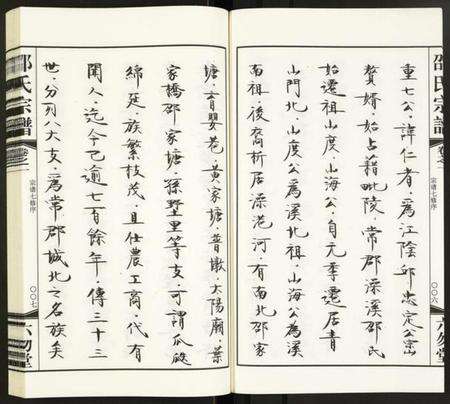 重七公·諱仁者·爲江陰邱忠定公宗山
贅婿·始占藉毗陵·常郡溁溪邵氏
始遷祖山度·山海公·自元季遷居青
山門北·山度公爲溪北祖·山海公爲溪
南祖·後裔析居溁港河·有南北邵家
塘·育嬰巷·黄家塘·普墩·太陽廟·葉
家橋邵家塘·孫墅里等支·可謂瓜瓞
綿延·族繁枝茂·且仕農工商·代有
聞人·迄今已逾七百餘年·傳三十三
世·分列八大支·爲常郡城北之名族矣
邵氏宗譜
宗谱七修序
〇〇六
六勿堂
邵氏宗譜
宗谱七修序
〇〇七
六勿堂